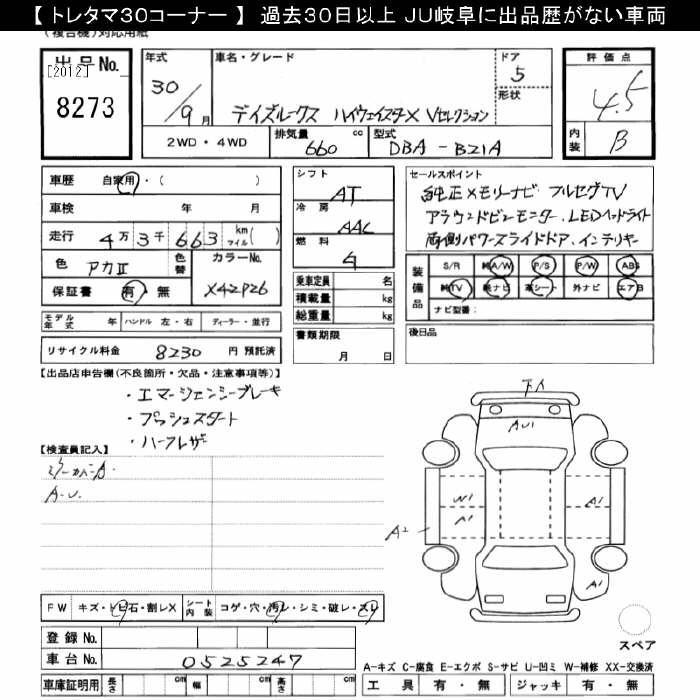 【 トレタマ30コーナー 】 過去30日以上 JU岐阜に出品歴がない車両
(複合機)対応用紙
出品No.
[2012]
8273
年式
30/9月
車名・グレード
デイズルークス ハイウェイスターX Vセレクション
ドア
5
形状
評価点
4.5
内装
B
2WD・4WD
排気量
660
cc
型式
DBA-B21A
車歴 自家用・( )
車検 年 月
走行 4万3千663 km マイル( )
色 アカII 色替 カラーNo.
X42P26
保証書 有・無
モデル年式 年 ハンドル 左・右 ディーラー・並行
リサイクル料金 8230 円 預託済
シフト
AT
冷房
AAC
燃料
G
乗車定員 名
積載量 kg
総重量 kg
書類期限
月 日
セールスポイント
純正メモリーナビ フルセグTV
アラウンドビューモニター、LEDヘッドライト
両側パワースライドドア、インテリキー
装備品
S/R 純A/W P/S P/W ABS
純TV 純ナビ 革シート 外ナビ エアB
ナビ型番:
後日品
【出品店申告欄(不良箇所・欠品・注意事項等)】
・エマージェンシーブレーキ
・プッシュスタート
・ハーフレザー
【検査員記入】
A・U.
下A
AU1
W1
A1
A2
A1
A1
スペア
FW キズ・トビ石・割レX シート内装 コゲ・穴・汚レ・シミ・破レ・スレ
登録No.
車台No. 0525247
車庫証明用 長さ cm 幅 cm 高さ cm
A-キズ C-腐食 E-エクボ S-サビ U-凹ミ W-補修 XX-交換済
工具 有・無 ジャッキ 有・無